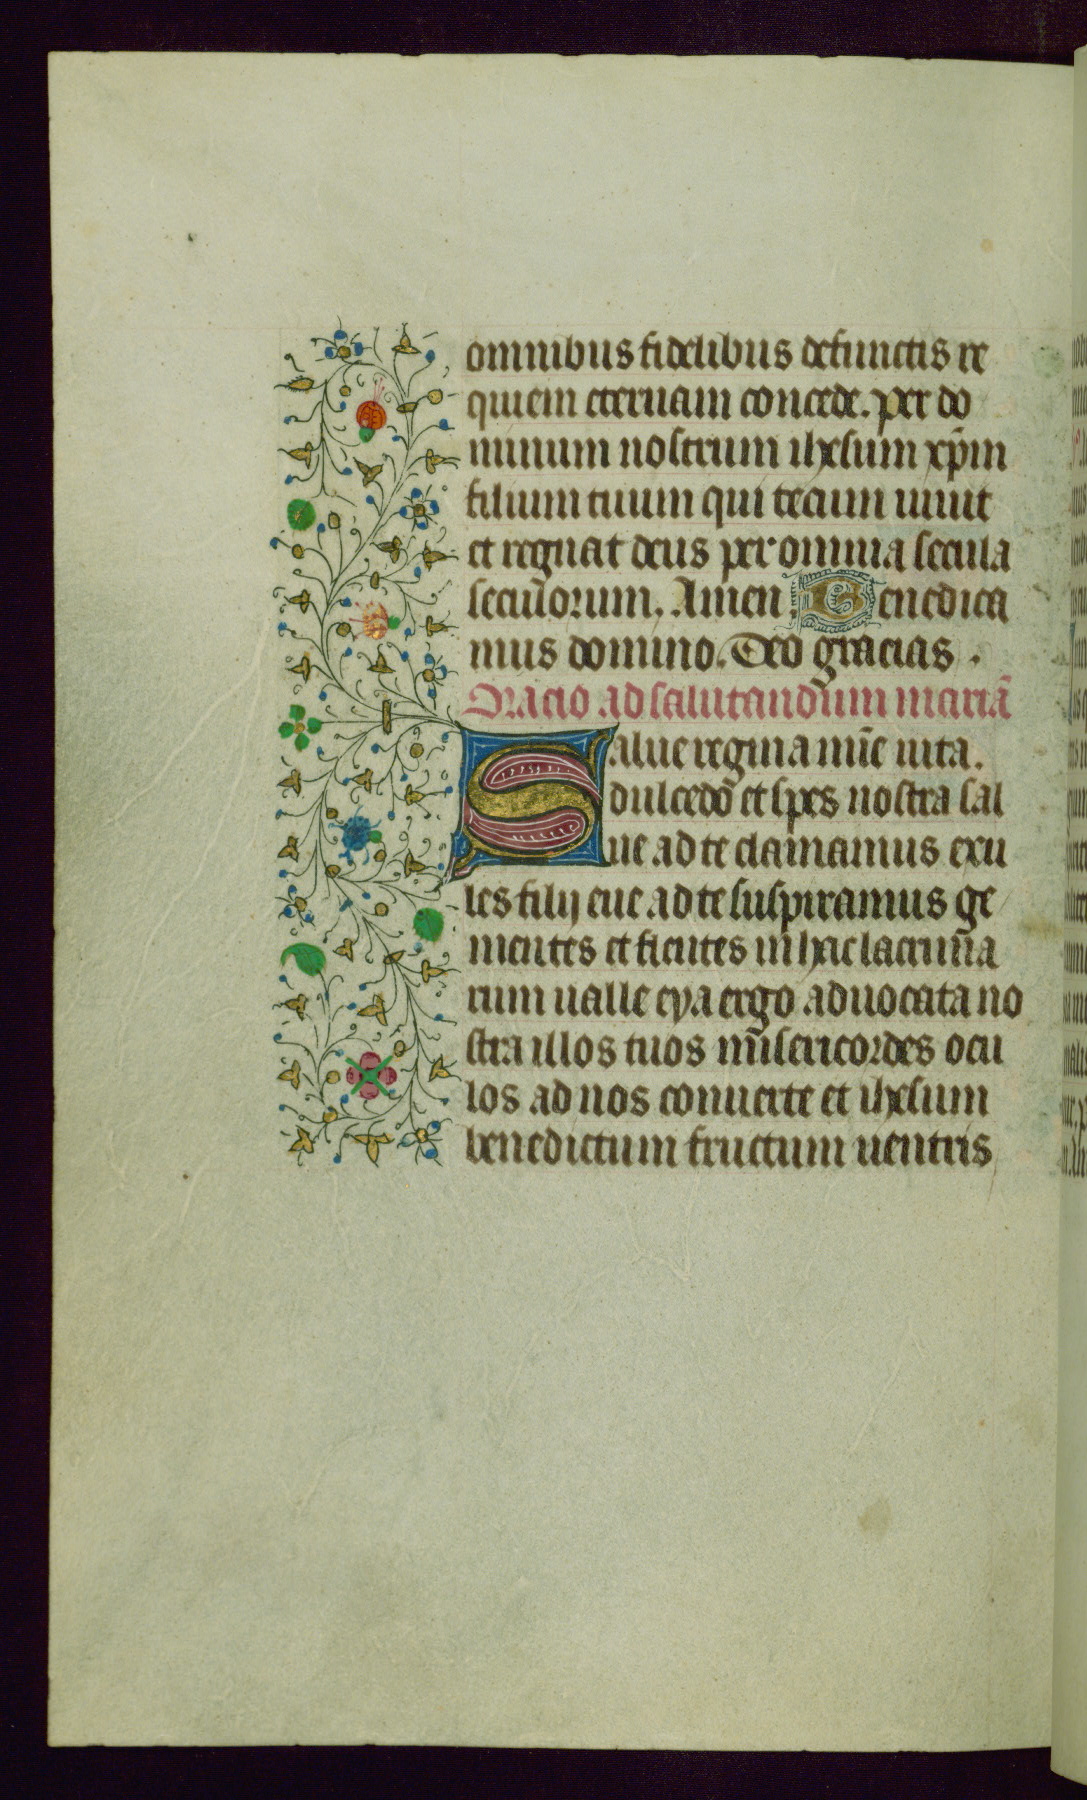 omnibus fidelibus defunctis re
quiem eternam concede. per do
minum nostrum ihesum xp̄m
filium tuum qui tecum uiuit
et regnat deus per omnia secula
seculorum. Amen. Benedica
mus domino. Deo gracias.
Oracio ad salutandum mariā
Salue regina mīe uita.
dulcedo et spes nostra sal
ue ad te clamamus exu
les filij eue ad te suspiramus ge
mentes et flentes in hac lacrima
rum ualle eya ergo aduocata no
stra illos tuos misericordes ocu
los ad nos conuerte et ihesum
benedictum fructum uentris